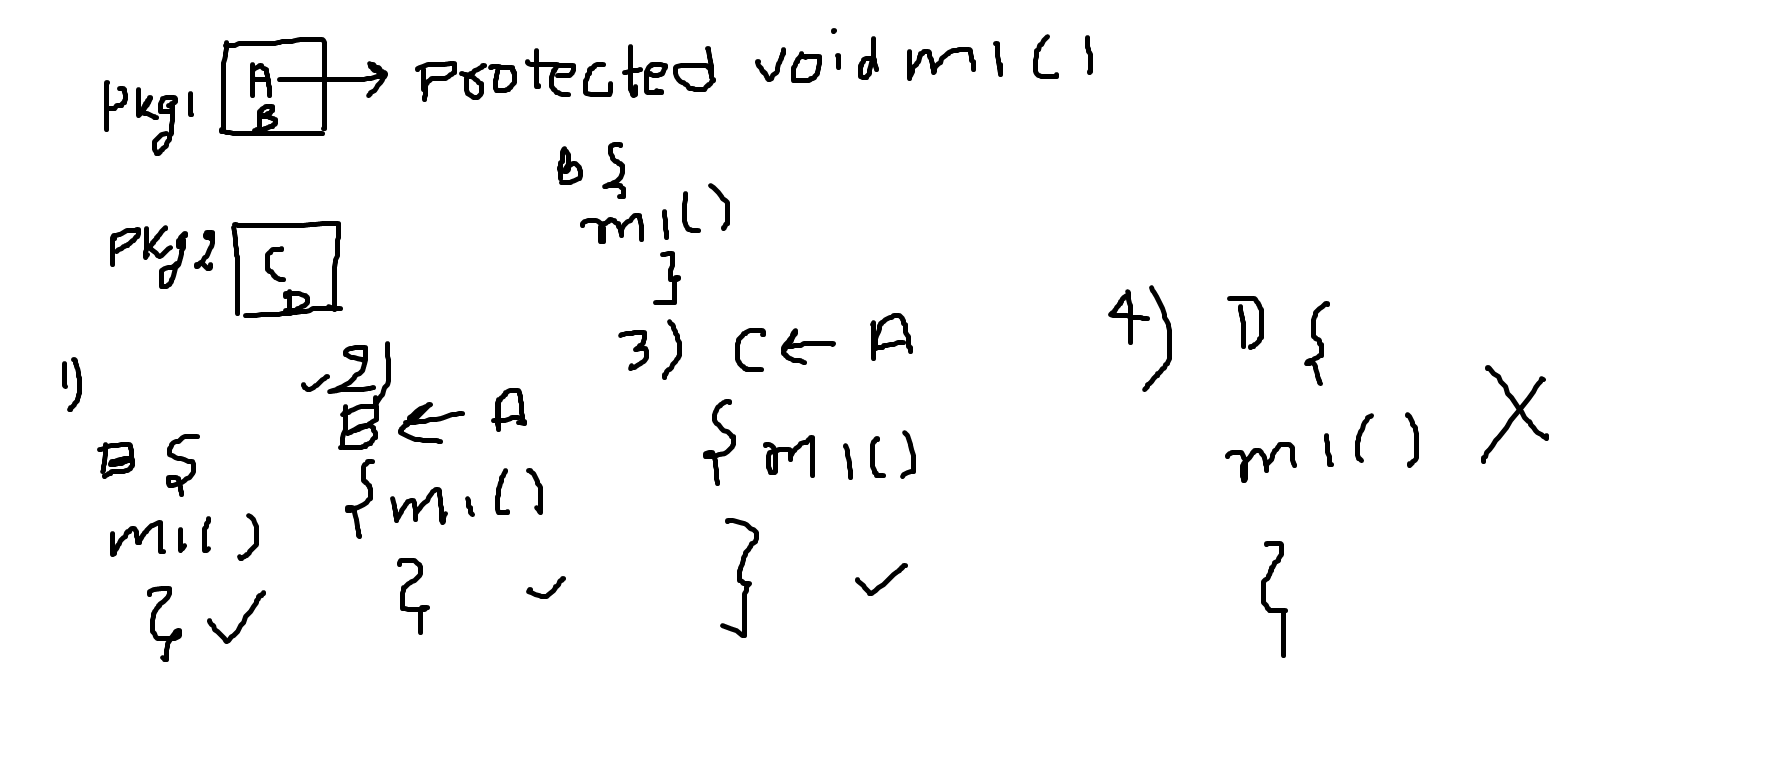 Pkg1 A → Protected void m1()
B
B {
m1()
}
Pkg2 C
D
1)
B {
m1()
} ✓
✓ 2)
B ← A
{ m1()
} ✓
3) C ← A
{ m1()
} ✓
4) D {
m1() X
}